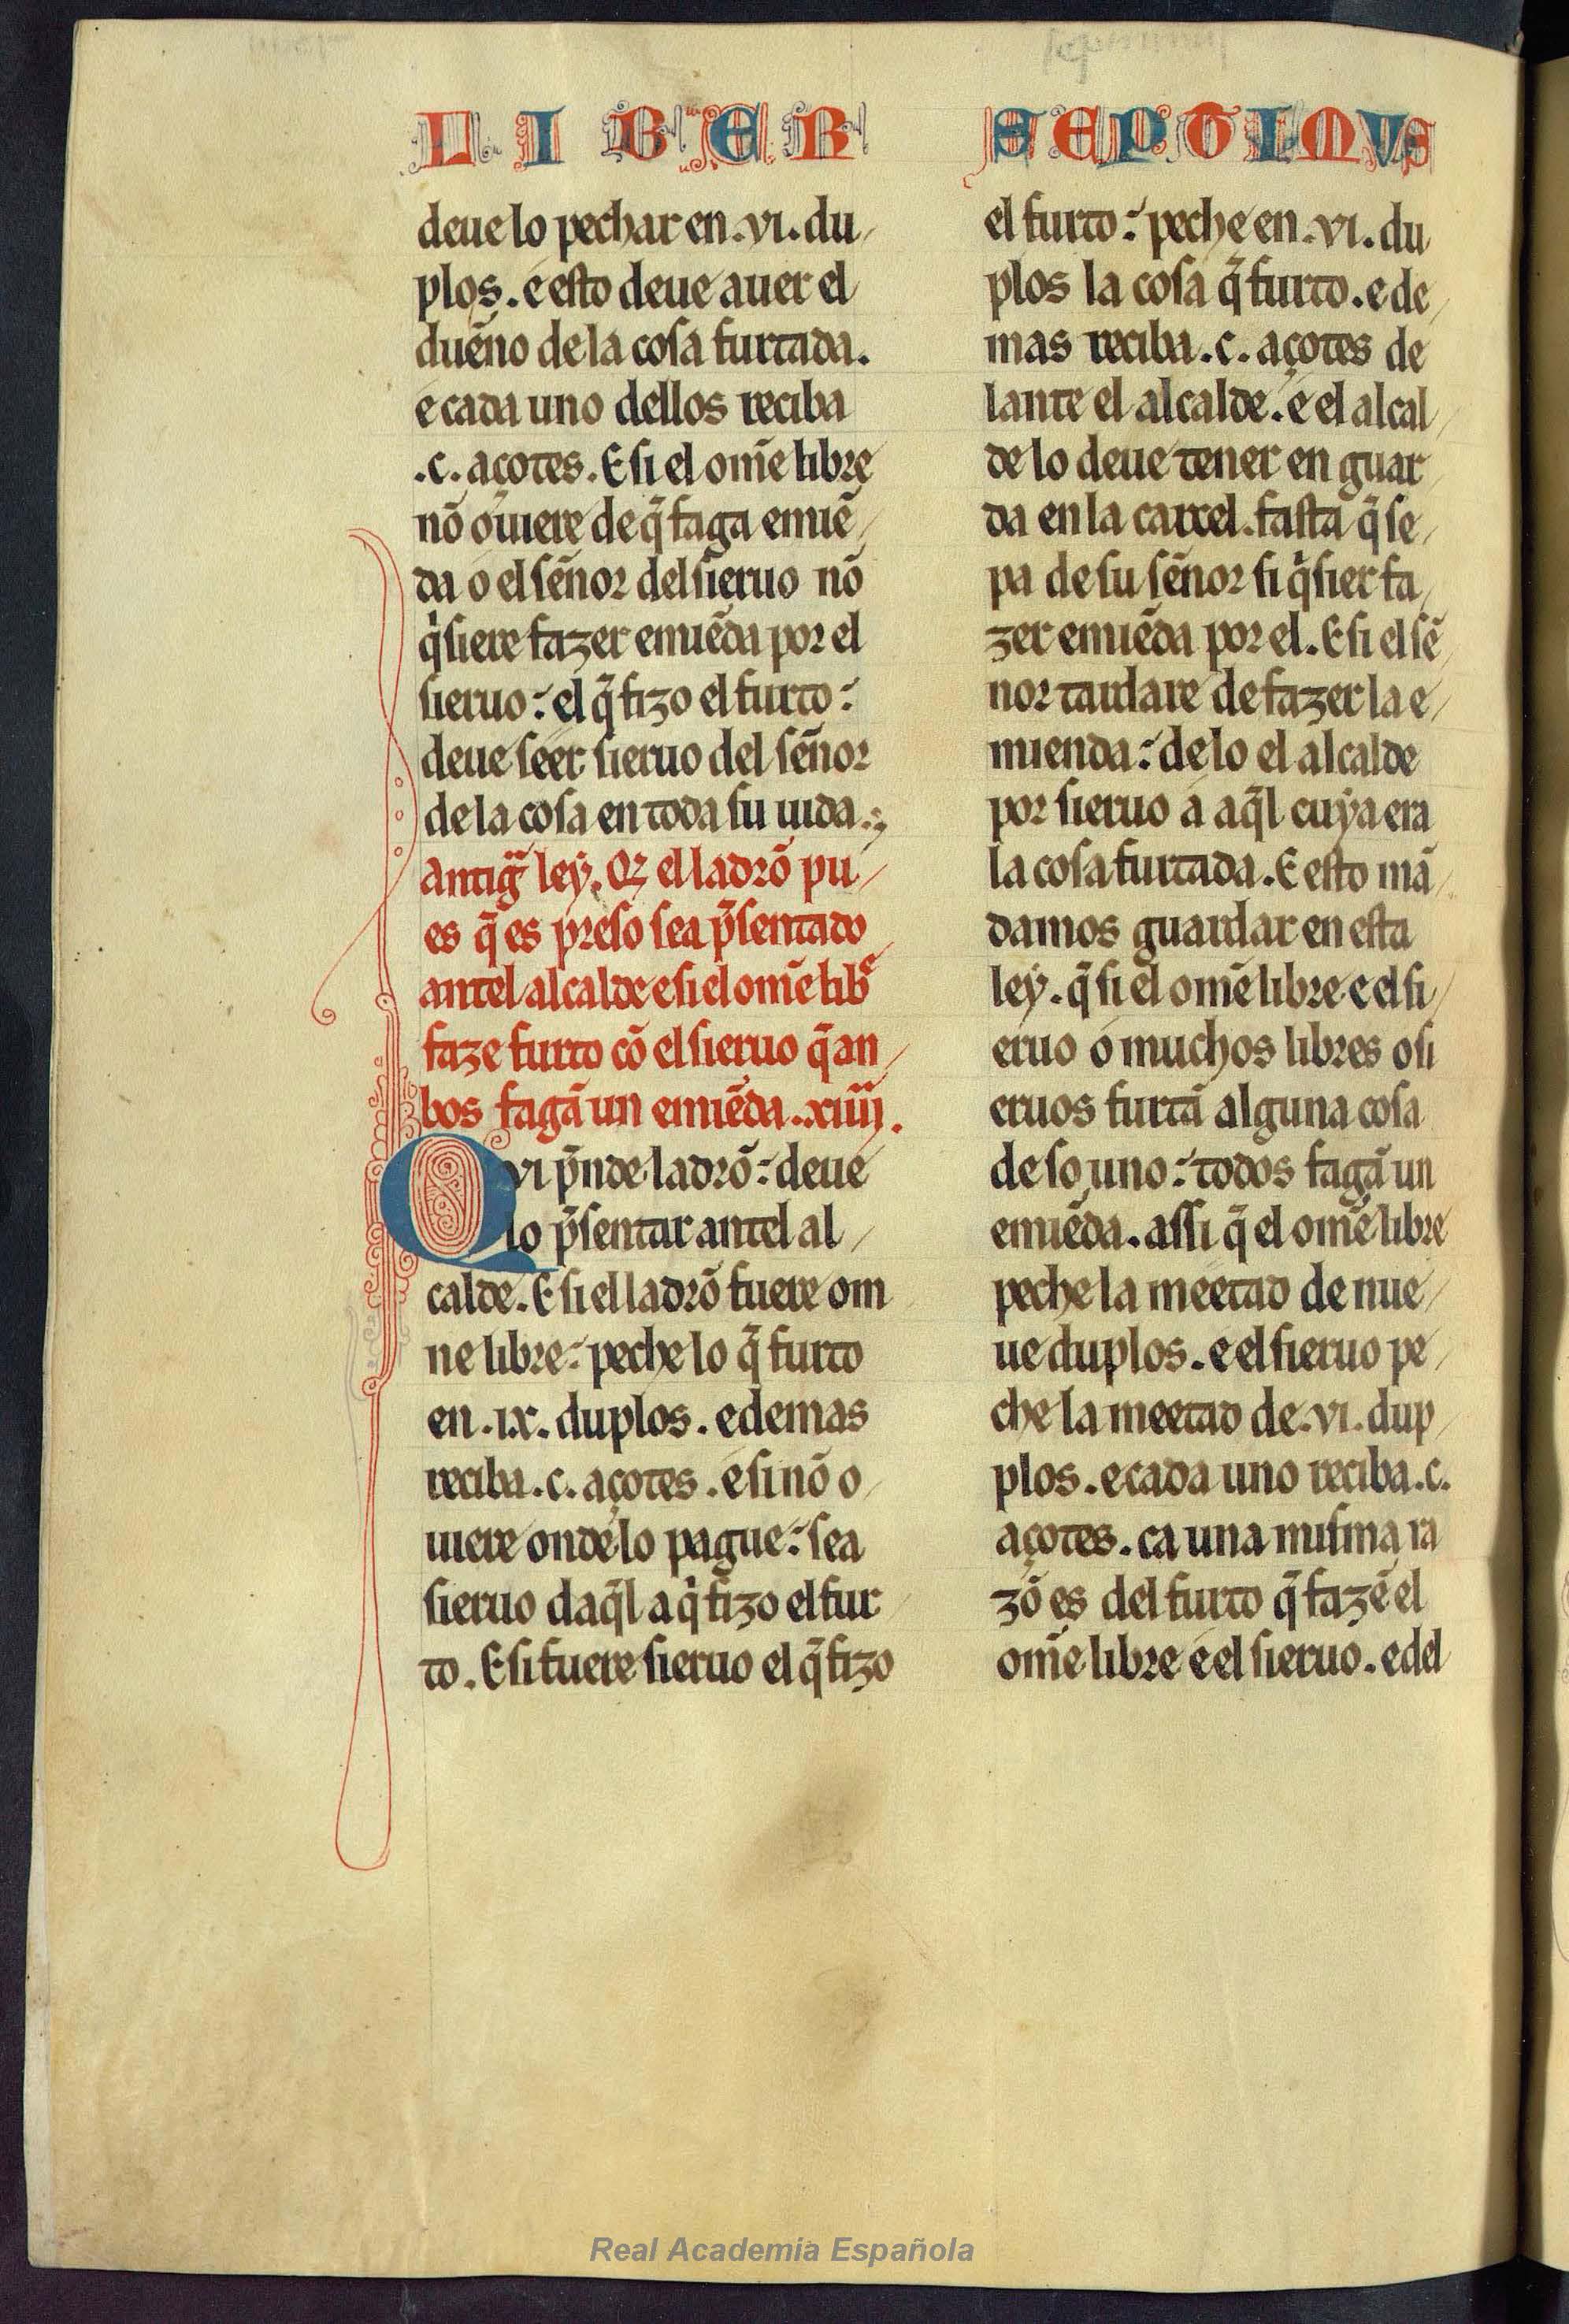 LIBER SEPTIMVS
deue lo pechar en .vi. du
plos. e esto deue auer el
dueño de la cosa furtada.
e cada uno dellos reciba
.c. açotes. E si el om̃e libre
nõ ouiere de q̃ faga emiẽ
da o el señor del sieruo nõ
q̇siere fazer emiẽda por el
sieruo: el q̃ fizo el furto:
deue seer sieruo del señor
de la cosa en toda su uida.
Antigᷓ ley. Qꝫ el ladrõ pu
es q̃ es preso sea p̃sentado
antel alcalde e si el om̃e libᵉ
faze furto cõ el sieruo q̃ an
bos fagã un emiẽda .xiiij.
Qvi p̃nde ladrõ: deue
lo p̃sentar antel al
calde. E si el ladrõ fuere om
ne libre: peche lo q̃ furto
en .ix. duplos. e demas
reciba .c. açotes. e si nõ o
uiere onde lo pague: sea
sieruo daq̃l a q̇ fizo el fur
to. E si fuere sieruo el q̃ fizo
el furto: peche en .vi. du
plos la cosa q̃ furto. e de
mas reciba .c. açotes de
lante el alcalde. e el alcal
de lo deue tener en guar
da en la carcel. fasta q̃ se
pa de su señor si q̇sier fa
zer emiẽda por el. E si el sẽ
nor tardare de fazer la e
mienda: de lo el alcalde
por sieruo a aq̃l cuya era
la cosa furtada. E esto mã
damos guardar en esta
ley. q̃ si el om̃e libre e el si
eruo o muchos libres o si
eruos furtã alguna cosa
de so uno: todos fagã un
emiẽda. assi q̃ el om̃e libre
peche la meetad de nue
ue duplos. e el sieruo pe
che la meetad de .vi. dup
plos. e cada uno reciba .c.
açotes. ca una misma ra
zõ es del furto q̃ fazẽ el
om̃e libre e el sieruo. e del
Real Academia Española